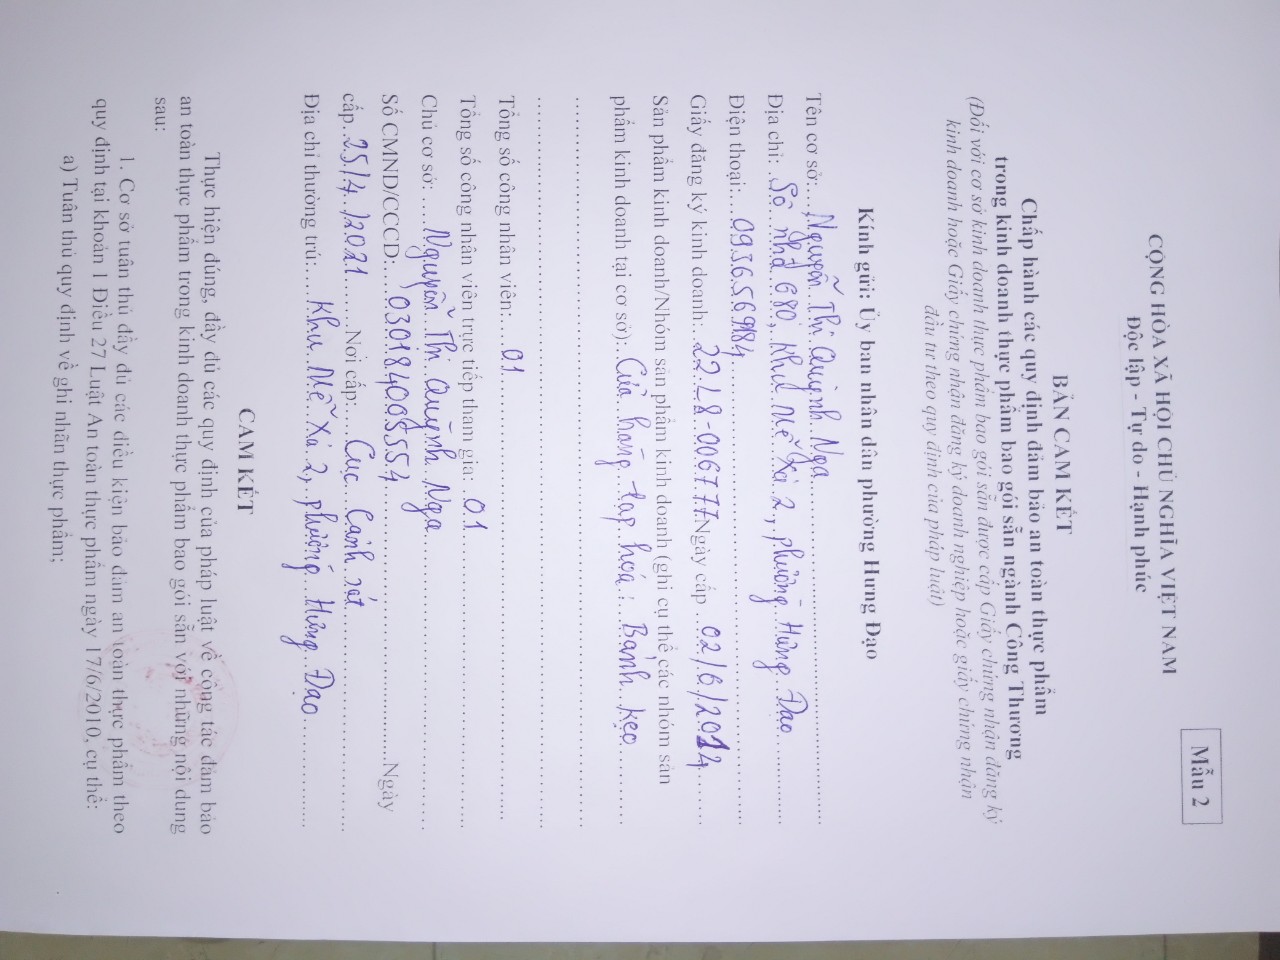 Mẫu 2
CỘNG HÒA XÃ HỘI CHỦ NGHĨA VIỆT NAM
Độc lập - Tự do - Hạnh phúc
BẢN CAM KẾT
Chấp hành các quy định đảm bảo an toàn thực phẩm
trong kinh doanh thực phẩm bao gói sẵn ngành Công Thương
(Đối với cơ sở kinh doanh thực phẩm bao gói sẵn được cấp Giấy chứng nhận đăng ký
kinh doanh hoặc Giấy chứng nhận đăng ký doanh nghiệp hoặc giấy chứng nhận
đầu tư theo quy định của pháp luật)
Kính gửi: Ủy ban nhân dân phường Hưng Đạo
Tên cơ sở: Nguyễn Thị Quỳnh Nga
Địa chỉ: Số nhà 680, khu Mễ Xá 2, phường Hưng Đạo
Điện thoại: 0936569184
Giấy đăng ký kinh doanh: 22.L8-006777 Ngày cấp 02/6/2014
Sản phẩm kinh doanh/Nhóm sản phẩm kinh doanh (ghi cụ thể các nhóm sản
phẩm kinh doanh tại cơ sở): Cửa hàng tạp hoá: Bánh kẹo
Tổng số công nhân viên: 01
Tổng số công nhân viên trực tiếp tham gia: 01
Chủ cơ sở: Nguyễn Thị Quỳnh Nga
Số CMND/CCCD: Ngày
cấp 25/4/2021 Nơi cấp: Cục Cảnh sát
Địa chỉ thường trú: Khu Mễ Xá 2, phường Hưng Đạo
CAM KẾT
Thực hiện đúng, đầy đủ các quy định của pháp luật về công tác đảm bảo
an toàn thực phẩm trong kinh doanh thực phẩm bao gói sẵn với những nội dung
sau:
1. Cơ sở tuân thủ đầy đủ các điều kiện bảo đảm an toàn thực phẩm theo
quy định tại khoản 1 Điều 27 Luật An toàn thực phẩm ngày 17/6/2010, cụ thể:
a) Tuân thủ quy định về ghi nhãn thực phẩm;